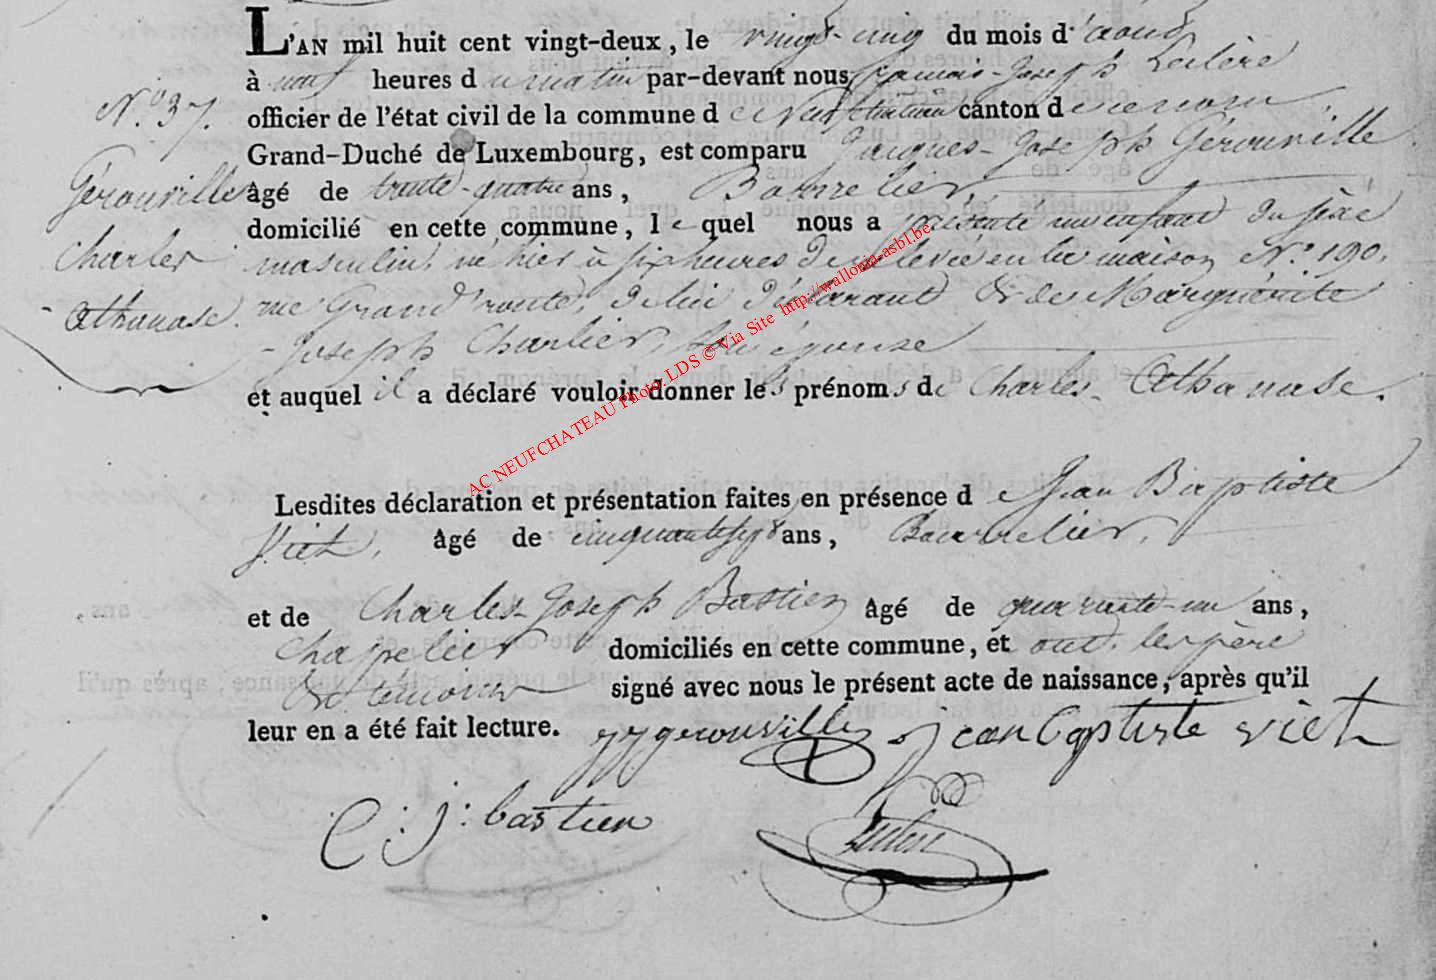 L'AN mil huit cent vingt-deux, le vingt-cinq du mois d'août
à neuf heures du matin par-devant nous françois-Joseph Leclère
N.° 37. officier de l'état civil de la commune de Neufchateau canton d
Grand-Duché de Luxembourg, est comparu Jacques-Joseph Gérouville
Gérouville âgé de trente-quatre ans, Bourrelier
domicilié en cette commune, lequel nous a présenté un enfant du sexe
Charles masculin, né hier à six heures de relevée en la maison N.° 190,
Athanase. rue Grand'route, de lui déclarant & de Marguerite
-Joseph Charlier, son épouse
et auquel il a déclaré vouloir donner les prénoms de Charles-Athanase.
Lesdites déclaration et présentation faites en présence de Jean Baptiste
Viet, âgé de cinquante sept ans, Bourrelier,
et de Charles-Joseph Bastien âgé de quarante-un ans,
Chapelier domiciliés en cette commune, et ont les père
& temoins signé avec nous le présent acte de naissance, après qu'il
leur en a été fait lecture. jjgerouville jean baptiste viet
C: j: bastien Leclere
AC NEUFCHATEAU Photo. LDS © Via Site http://wallonia-asbl.be